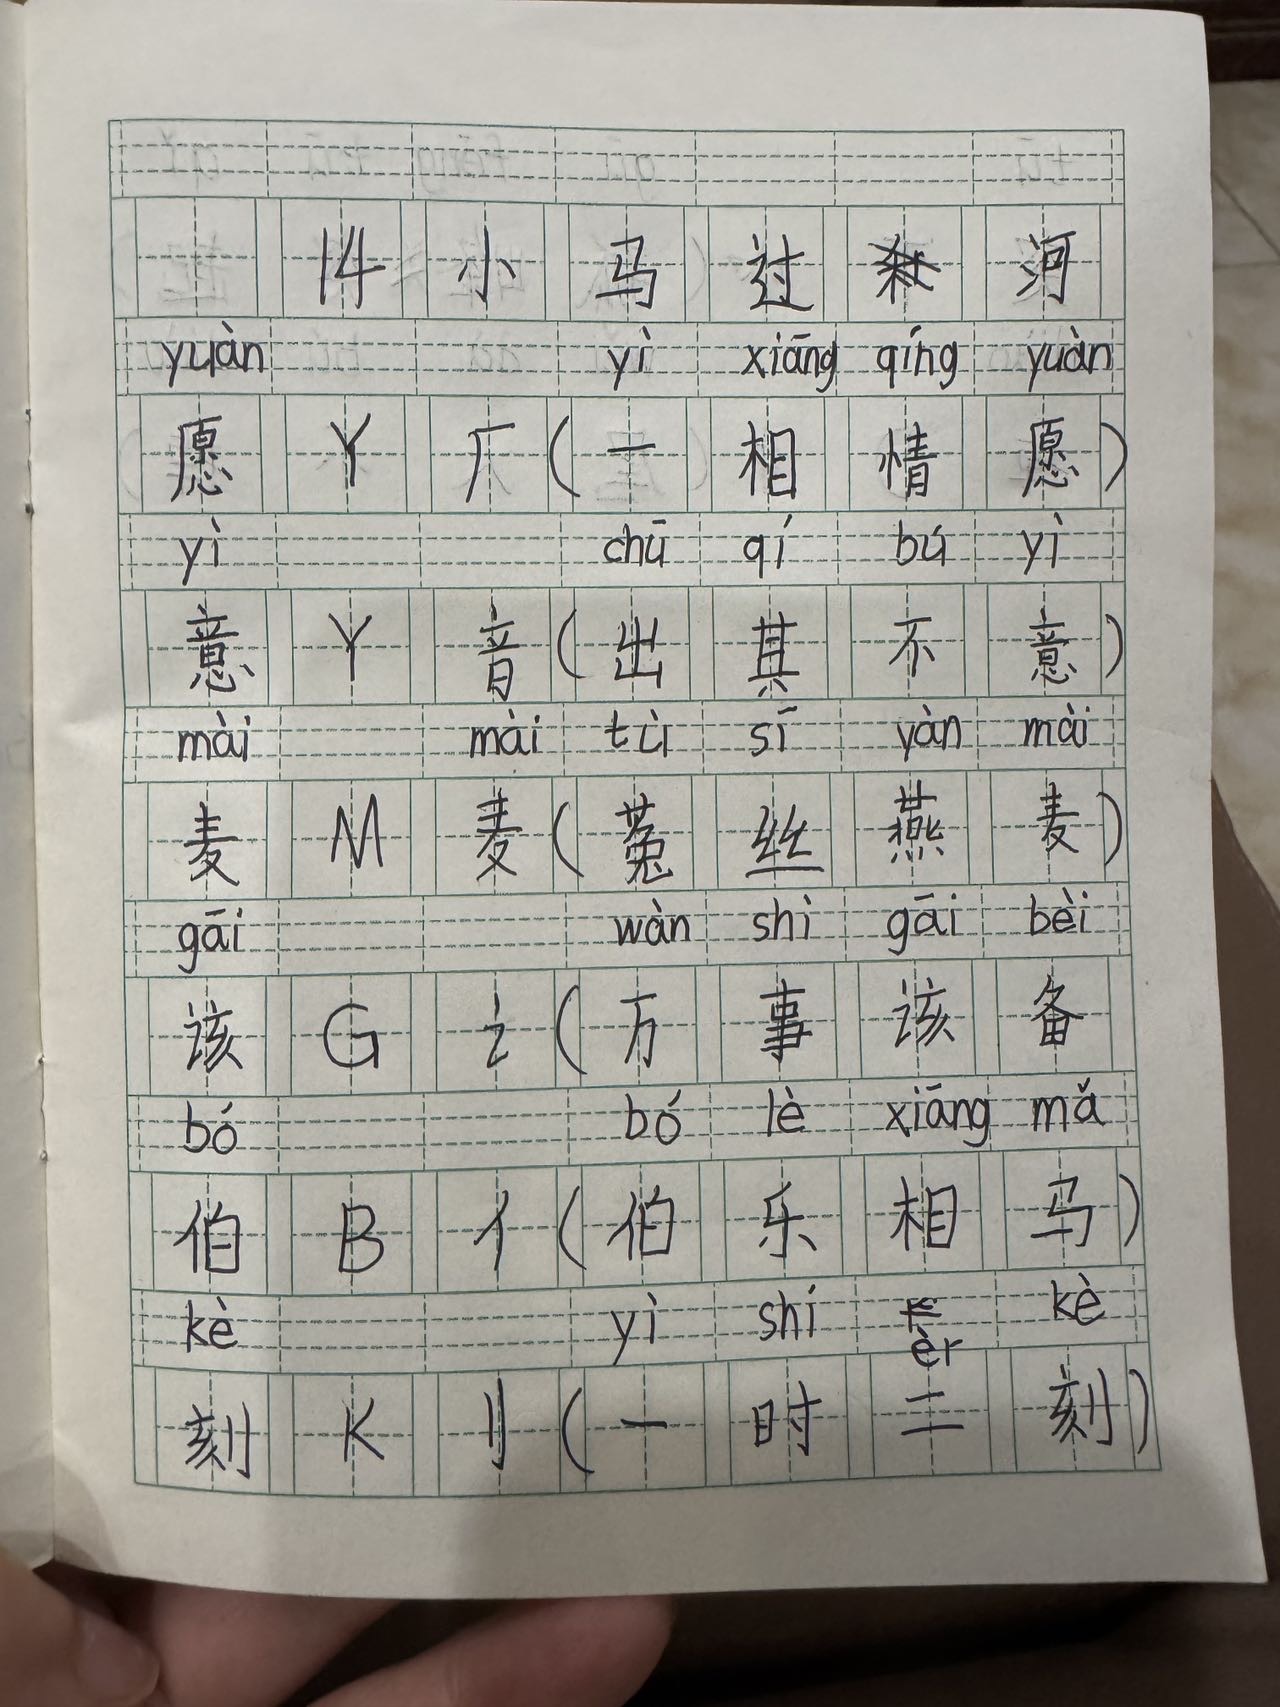 14 小马过河
yuàn yì xiāng qíng yuàn
愿 Y 厂 (一相情愿)
yì chū qí bú yì
意 Y 音 (出其不意)
mài mài tù sī yàn mài
麦 M 麦 (菟丝燕麦)
gāi wàn shì gāi bèi
该 G 讠 (万事该备
bó bó lè xiāng mǎ
伯 B 亻 (伯乐相马)
kè yì shí èr kè
刻 K 刂 (一时二刻)